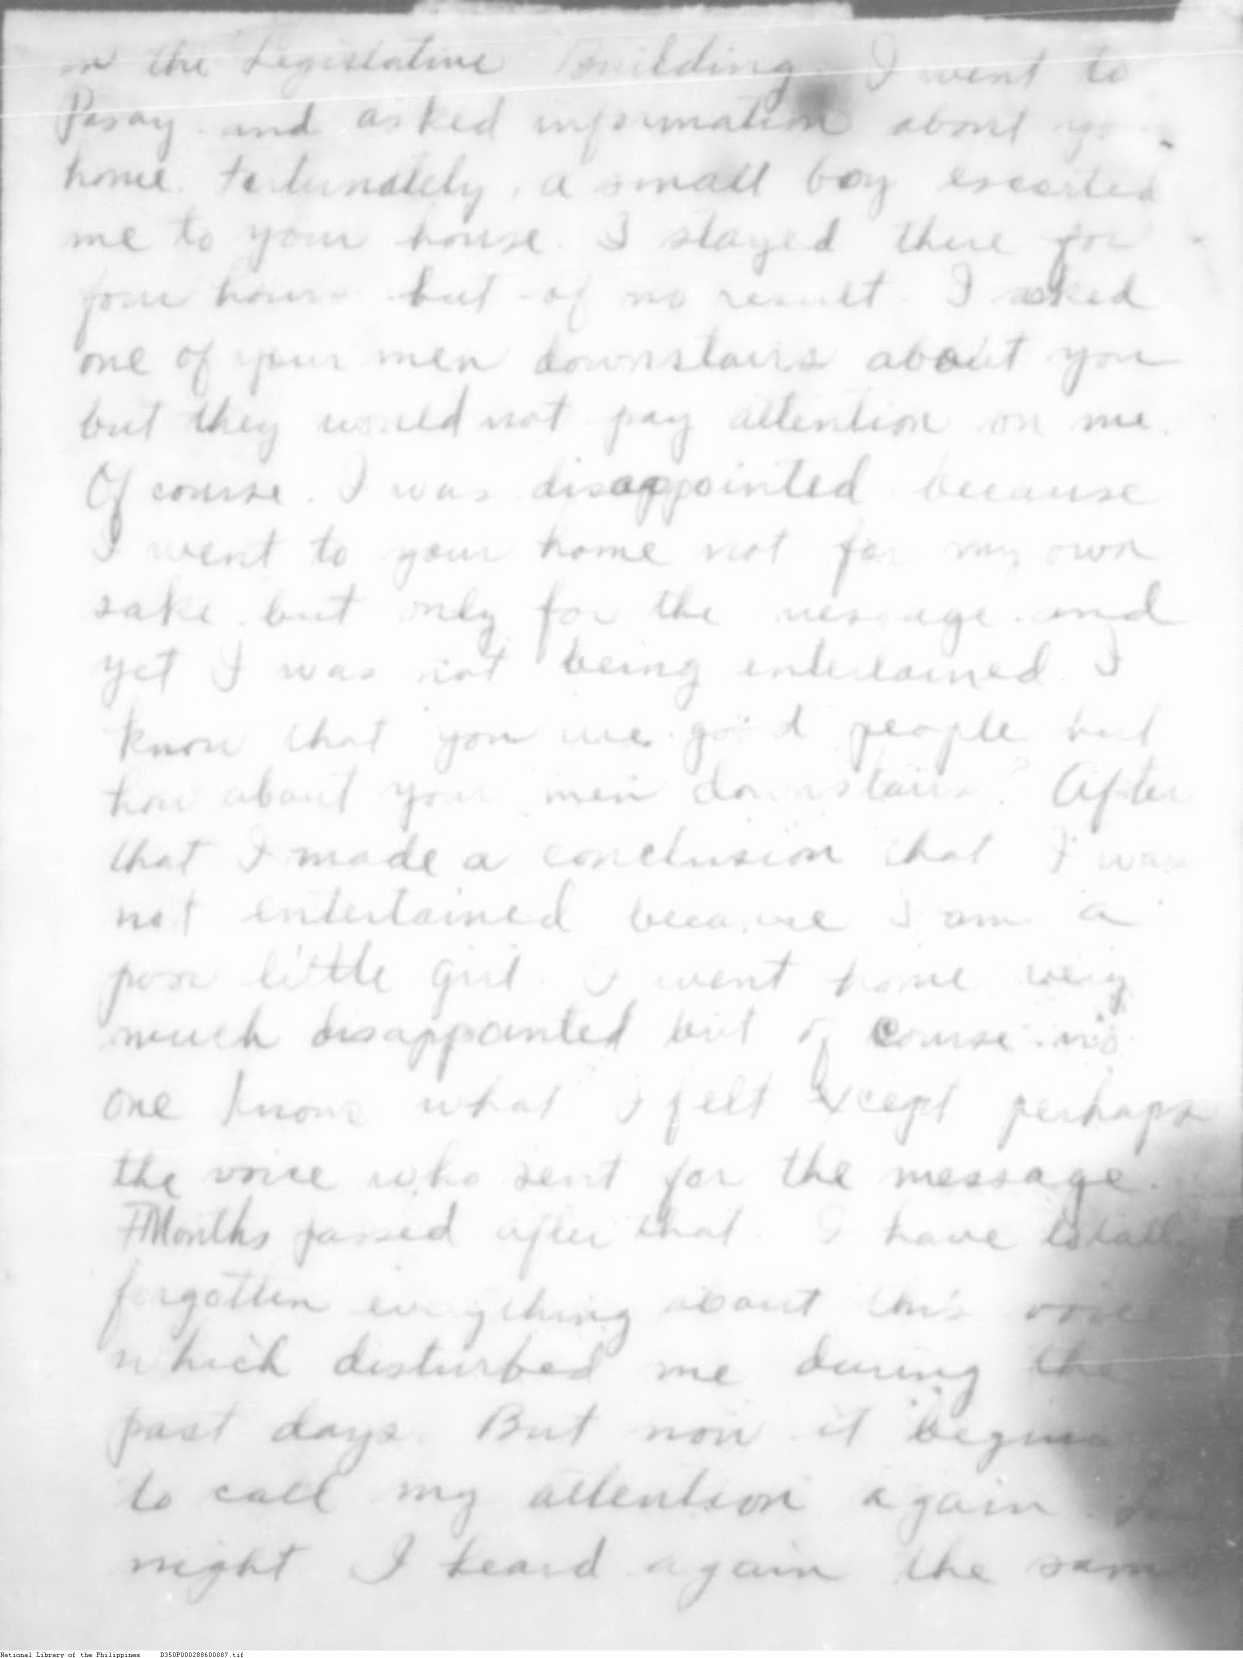 in the Legislative Building. I went to
Pasay and asked information about
home. Fortunately, a small boy escorted
me to your house. I stayed there for
four hours but of no result. I asked
one of your men downstairs about you
but they would not pay attention on me.
Of course. I was disappointed because
I went to your home not for my own
sake but only for the message and
yet I was not being entertained. I
know that you are good people but
how about your men downstairs? After
that I made a conclusion that I was
not entertained because I am a
poor little girl. I went home very
much disappointed but of course no
one knows what I felt except perhaps
the voice who sent for the message.
Months passed after that. I have totally
forgotten everything about this voice
which disturbed me during the
past days. But now it begins
to call my attention again.
night I heard again the same
National Library of the Philippines D350P000288600087.tif